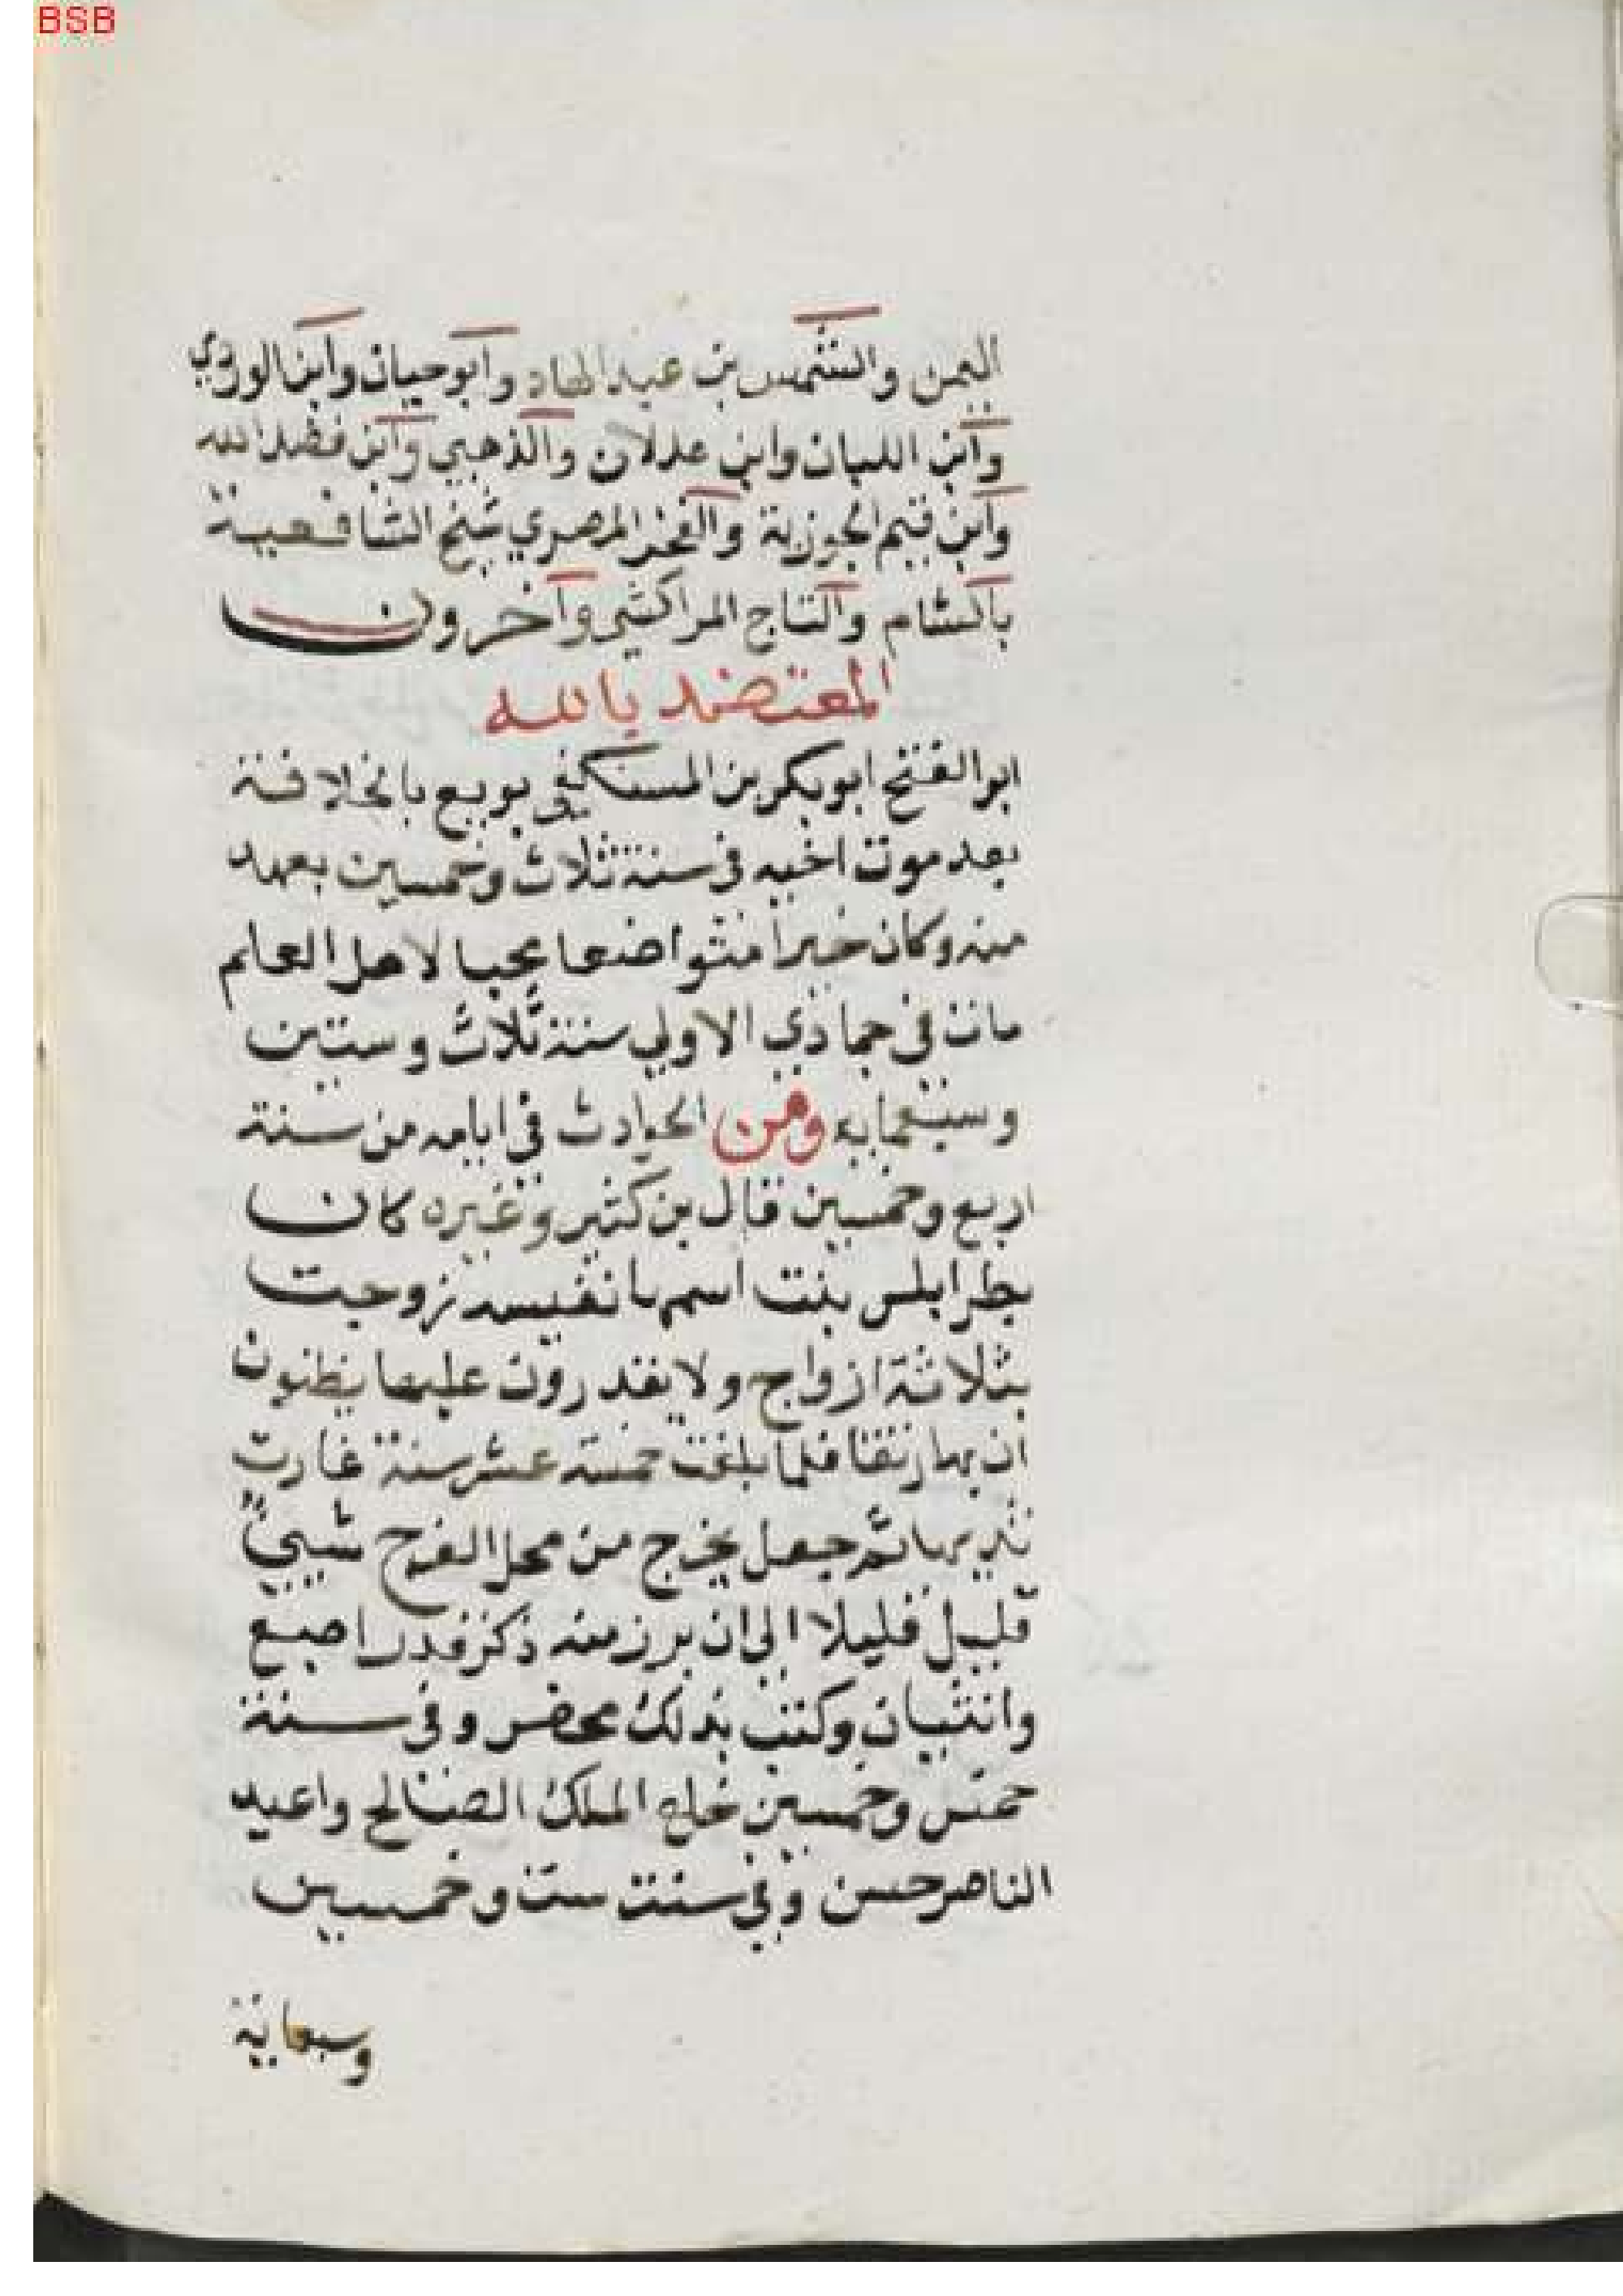 BSB
اليمن والشمس بن عبد الهادي وأبو حيان وأبن الوردي
وأبن اللبان وابن عدلان والذهبي وأبن فضل الله
وأبن قيم الجوزية والفخر المصري شيخ الشافعية
بالشام والتاج المراكشي وآخرون
المعتضد بالله
ابو الفتح ابو بكر بن المستكفي بويع بالخلافة
بعد موت اخيه في سنة ثلاث وخمسين بعهد
منه وكان خيرا متواضعا محبا لاهل العلم
مات في جمادي الاولي سنة ثلاث وستين
وسبعمايه ومن الحوادث في ايامه من سنة
اربع وخمسين قال بن كثير وغيره كان
بطرابلس بنت اسمها نفيسه زوجت
بثلاثة ازواج ولا يقدرون عليها يظنون
ان بها رتقا فلما بلغت خمسة عشر سنة غارت
ثديهاثم جعل يخرج من محل الفرج شيئ
قليل قليلا الى ان برز منه ذكر قدر اصبع
وانثيان وكتب بذلك محضر وفي سنة
خمس وخمسين خلع الملك الصالح واعيد
الناصر حسن وفي سنت ست وخمسين
وسبعماية